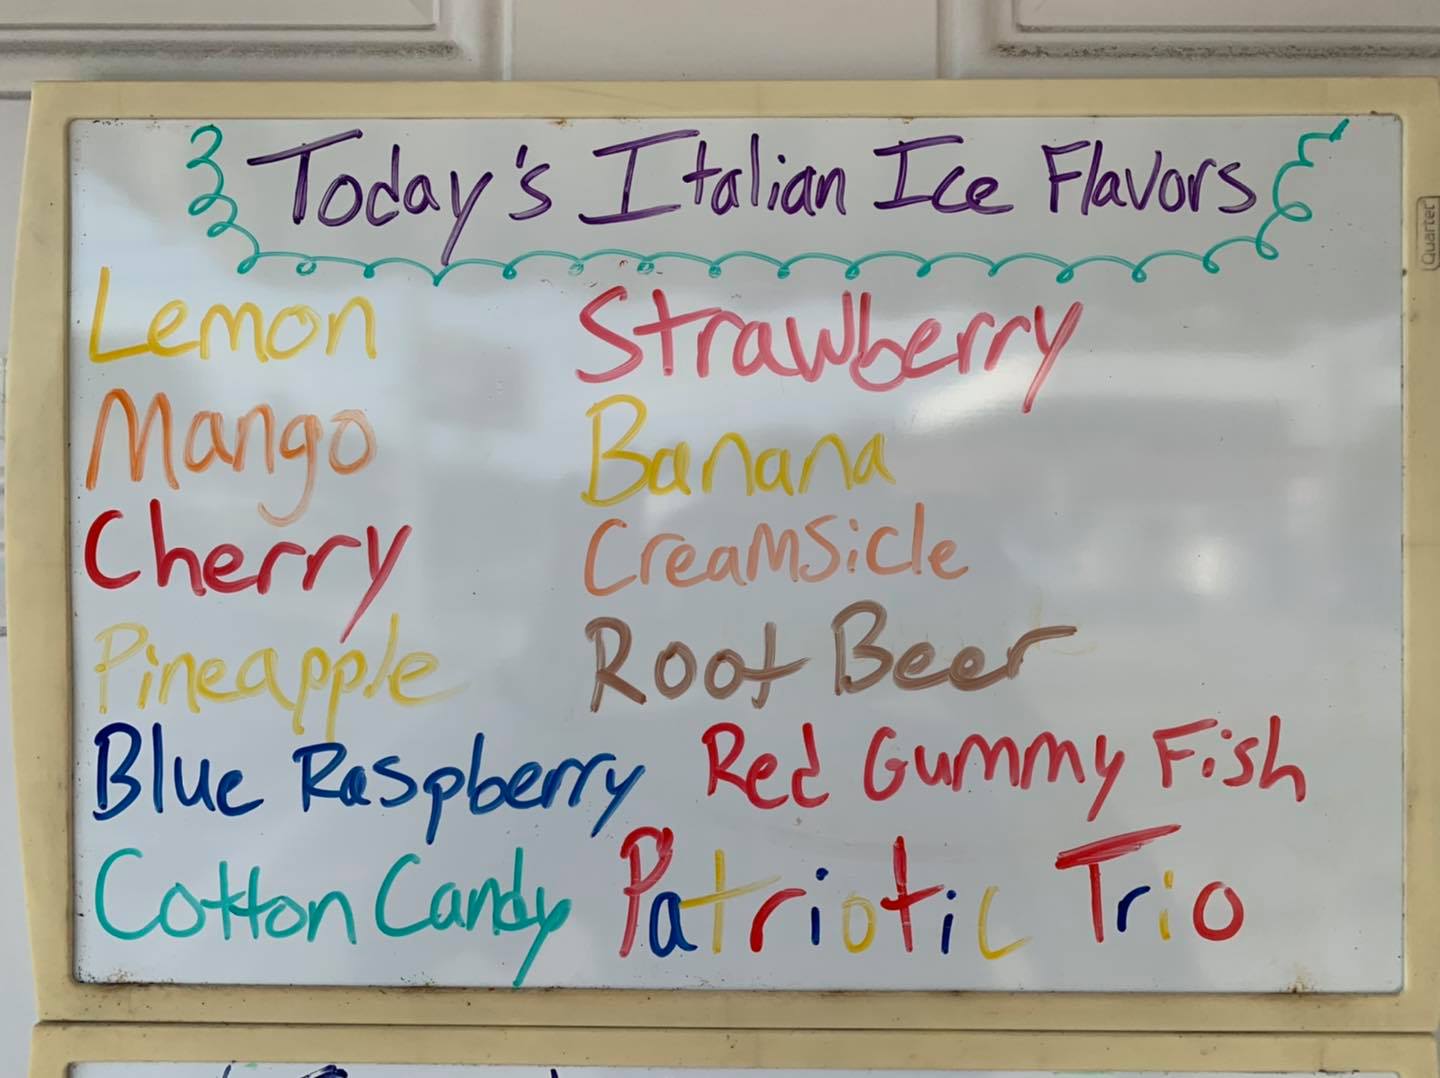 Today's Italian Ice Flavors
Lemon
Mango
Cherry
Pineapple
Blue Raspberry
Cotton Candy
Strawberry
Banana
Creamsicle
Root Beer
Red Gummy Fish
Patriotic Trio
Quartet